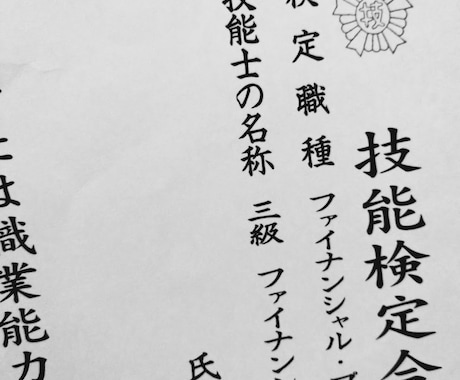 技能検定合
検定職種 ファイナンシャル・プ
技能士の名称 三級 ファイナン
氏
には職業能力